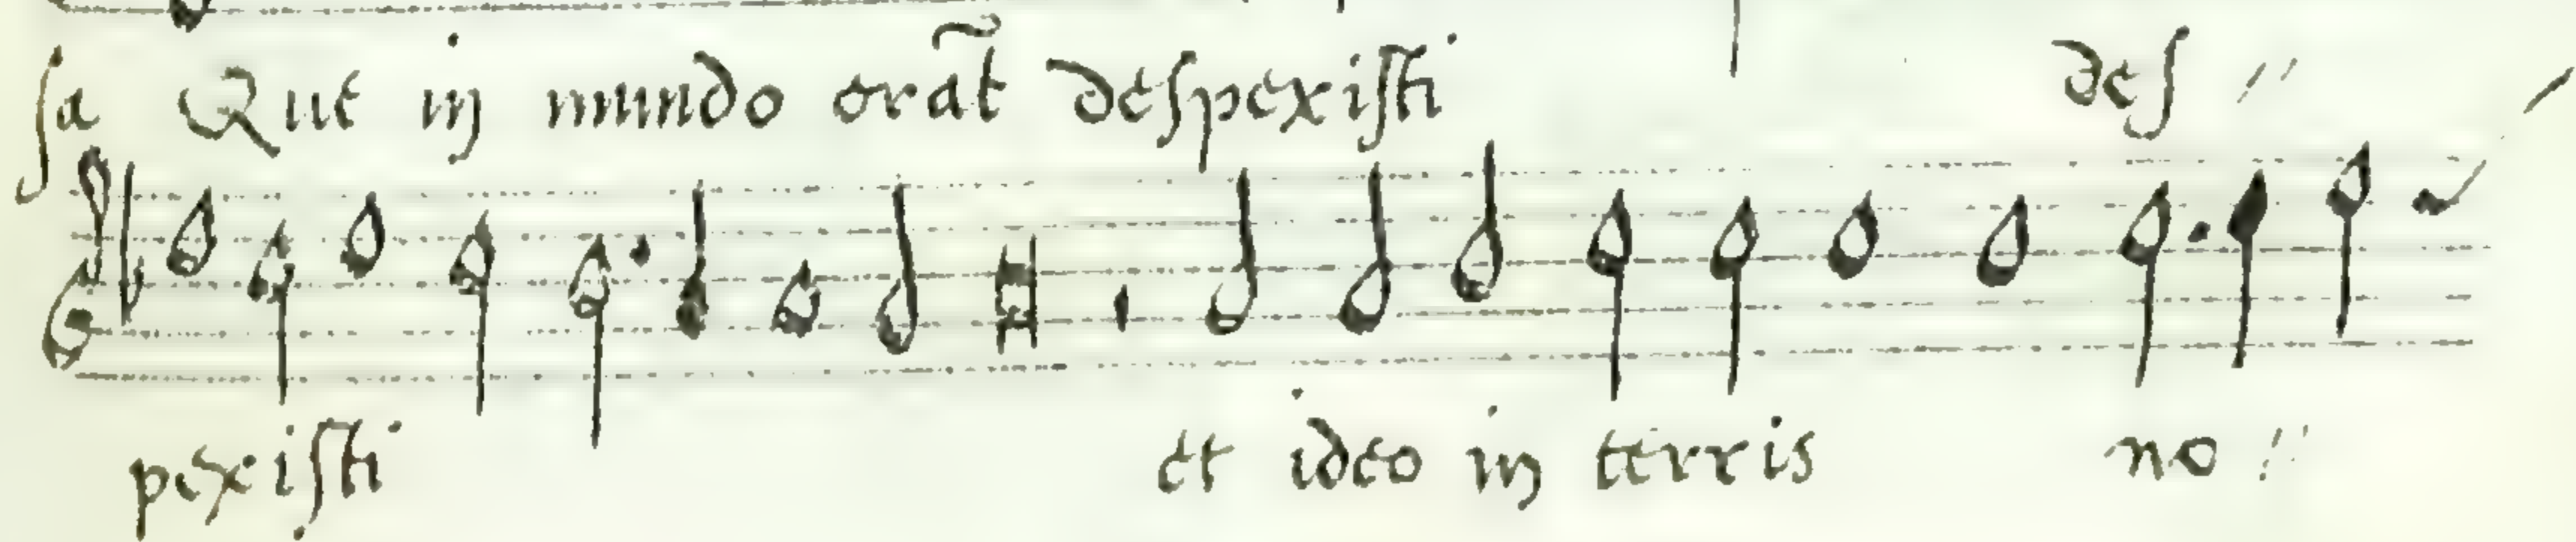 sa Que in mundo erãt despexisti des //
pexisti et ideo in terris no //